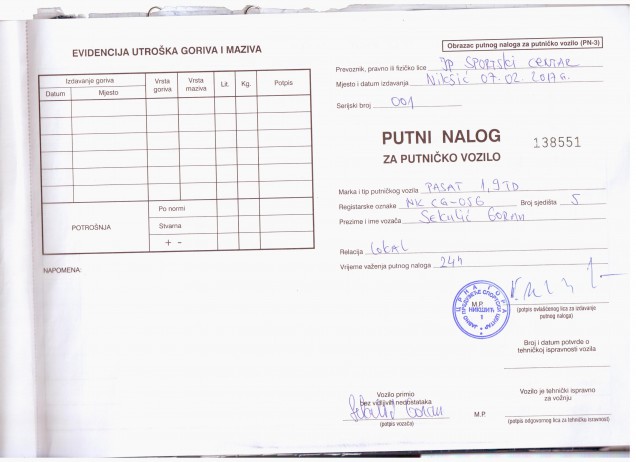 EVIDENCIJA UTROŠKA GORIVA I MAZIVA
Izdavanje goriva
Datum
Mjesto
Vrsta goriva
Vrsta maziva
Lit.
Kg.
Potpis
POTROŠNJA
Po normi
Stvarna
+ -
NAPOMENA:
Obrazac putnog naloga za putničko vozilo (PN-3)
Prevoznik, pravno ili fizičko lice JP SPORTSKI CENTAR
Mjesto i datum izdavanja Nikšić 07.02.2017G.
Serijski broj 001
PUTNI NALOG
ZA PUTNIČKO VOZILO
138551
Marka i tip putničkog vozila PASAT 1,9TD
Registarske oznaka NK CG-056 Broj sjedišta 5
Prezime i ime vozača Sekulić GORAN
Relacija LOKAL
Vrijeme važenja putnog naloga 24h
ЦРНА ГОРА
ЈАВНО ПРЕДУЗЕЋЕ СПОРТСКИ ЦЕНТАР
НИКШИЋ
1
M.P.
(potpis ovlašćenog lica za izdavanje
putnog naloga)
Broj i datum potvrde o
tehničkoj ispravnosti vozila
Vozilo primio
bez vidljivih nedostataka
Sekulić Goran
(potpis vozača)
Vozilo je tehnički ispravno
za vožnju
M.P.
(potpis odgovornog lica za tehničku ispravnost)